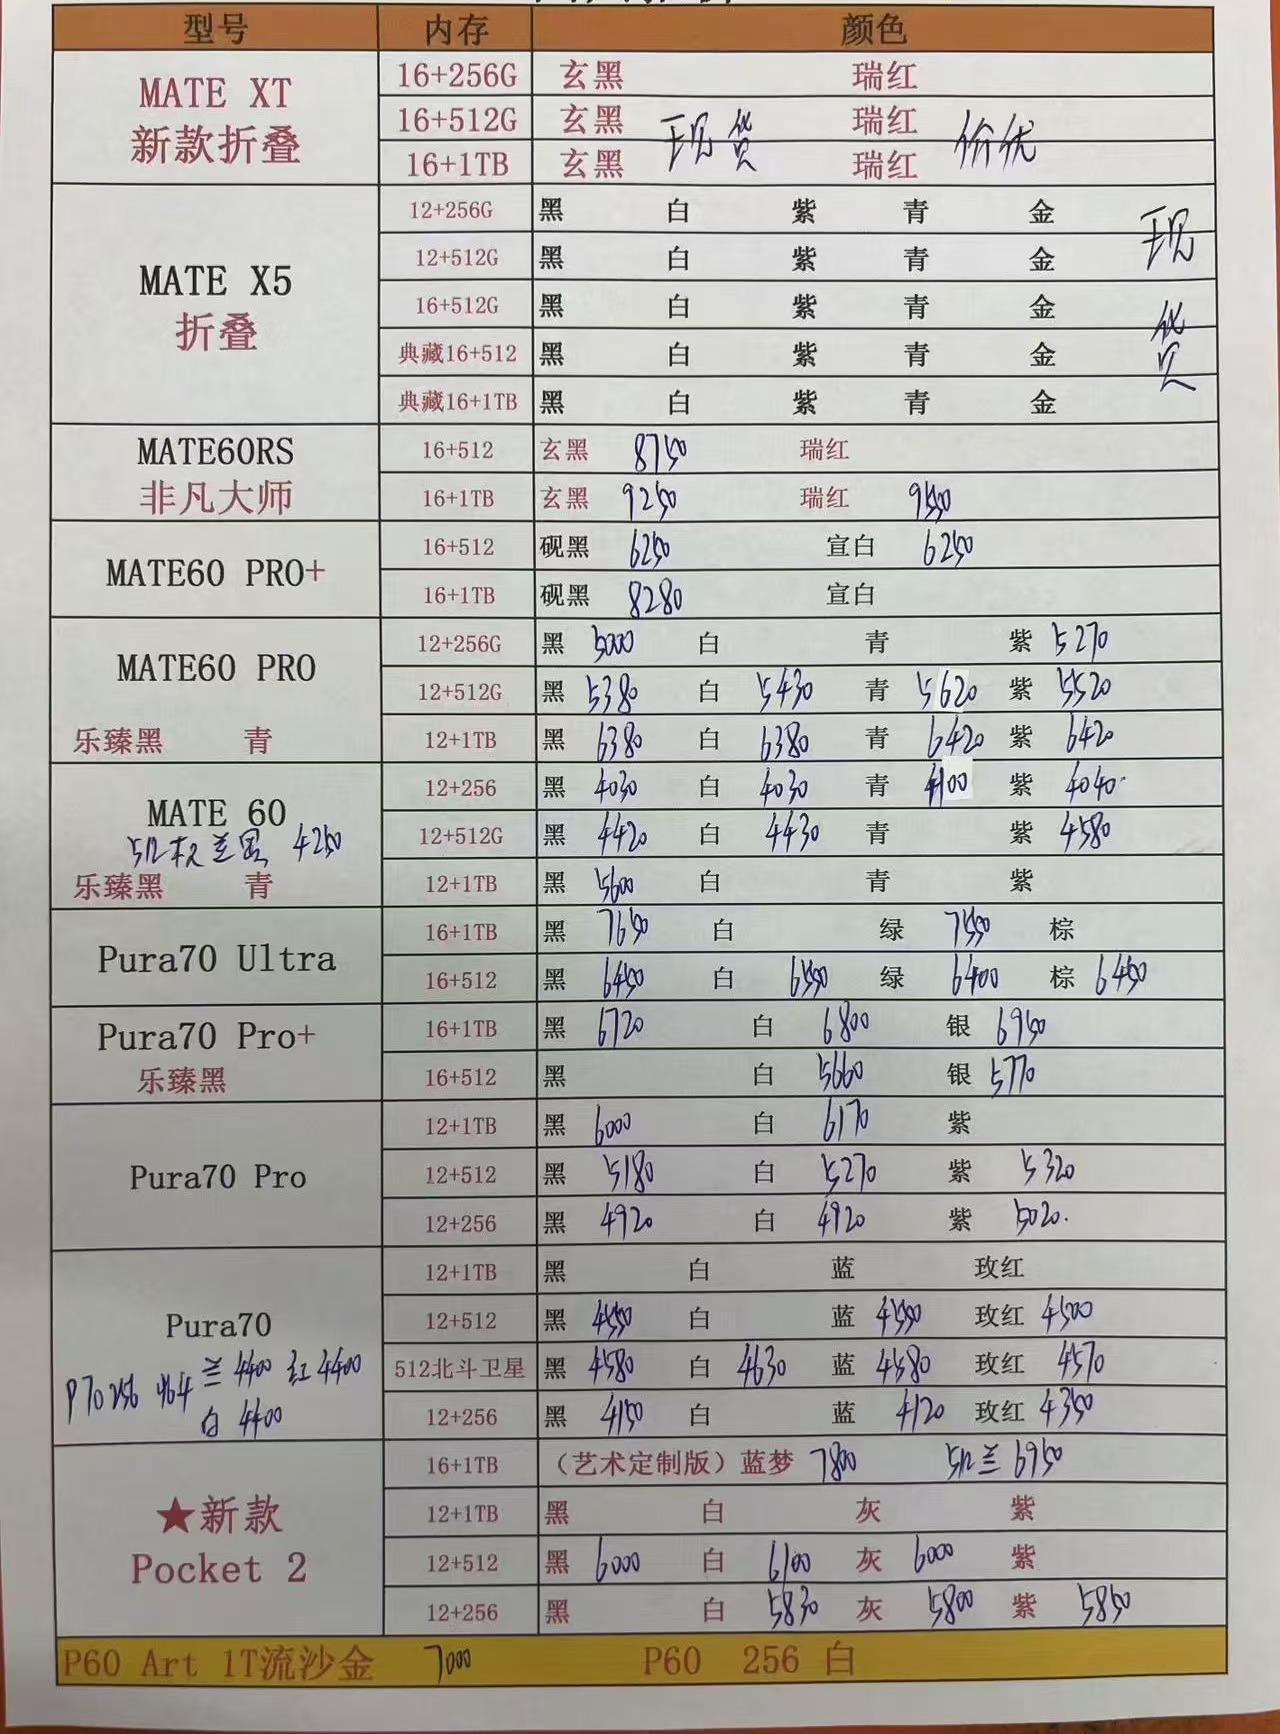 型号 内存 颜色
MATE XT
新款折叠
16+256G 玄黑 瑞红
16+512G 玄黑 现货 瑞红 价优
16+1TB 玄黑 瑞红
MATE X5
折叠
12+256G 黑 白 紫 青 金 现货
12+512G 黑 白 紫 青 金
16+512G 黑 白 紫 青 金
典藏16+512 黑 白 紫 青 金
典藏16+1TB 黑 白 紫 青 金
MATE60RS
非凡大师
16+512 玄黑 8750 瑞红
16+1TB 玄黑 9250 瑞红 9550
MATE60 PRO+
16+512 砚黑 6250 宣白 6250
16+1TB 砚黑 8280 宣白
MATE60 PRO
乐臻黑 青
12+256G 黑 5000 白 青 紫 5270
12+512G 黑 5380 白 5430 青 5620 紫 5520
12+1TB 黑 6380 白 6380 青 6420 紫 6420
MATE 60
512 兰黑 4250
乐臻黑 青
12+256 黑 4030 白 4030 青 4100 紫 4040
12+512G 黑 4420 白 4430 青 紫 4580
12+1TB 黑 5600 白 青 紫
Pura70 Ultra
16+1TB 黑 7650 白 绿 7550 棕
16+512 黑 6450 白 6550 绿 6400 棕 6450
Pura70 Pro+
乐臻黑
16+1TB 黑 6720 白 6800 银 6950
16+512 黑 白 5660 银 5770
Pura70 Pro
12+1TB 黑 6000 白 6170 紫
12+512 黑 5180 白 5270 紫 5320
12+256 黑 4920 白 4920 紫 5020
Pura70
P70 256 兰 4400 红 4400
白 4400
12+1TB 黑 白 蓝 玫红
12+512 黑 4550 白 蓝 4550 玫红 4500
512北斗卫星 黑 4580 白 4630 蓝 4580 玫红 4570
12+256 黑 4150 白 蓝 4120 玫红 4350
★新款
Pocket 2
16+1TB （艺术定制版）蓝梦 7800 512兰 6950
12+1TB 黑 白 灰 紫
12+512 黑 6000 白 6100 灰 6000 紫
12+256 黑 白 5830 灰 5800 紫 5850
P60 Art 1T流沙金 7000 P60 256 白